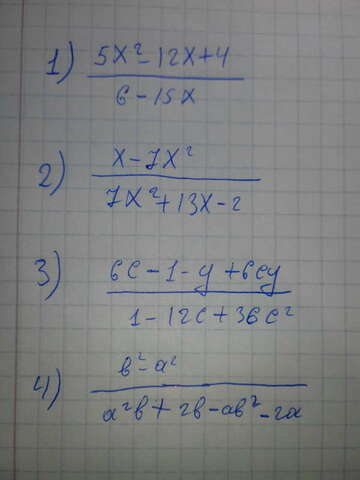 1) 5x² - 12x + 4
6 - 15x
2) x - 7x²
7x² + 13x - 2
3) 6c - 1 - y + 6cy
1 - 12c + 36c²
4) b² - a²
a²b + 2b - ab² - 2a